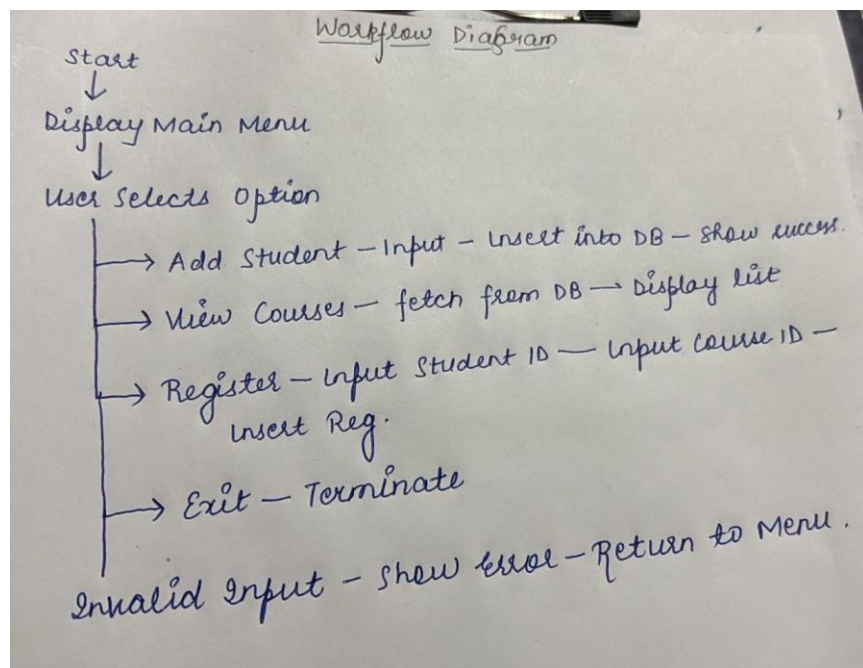 Workflow Diagram
Start
↓
Display Main Menu
↓
User Selects Option
→ Add Student – Input – Insert into DB – Show success.
→ View Courses – fetch from DB – Display list
→ Register – Input Student ID – Input Course ID –
Insert Reg.
→ Exit – Terminate
Invalid Input – Show Error – Return to Menu.